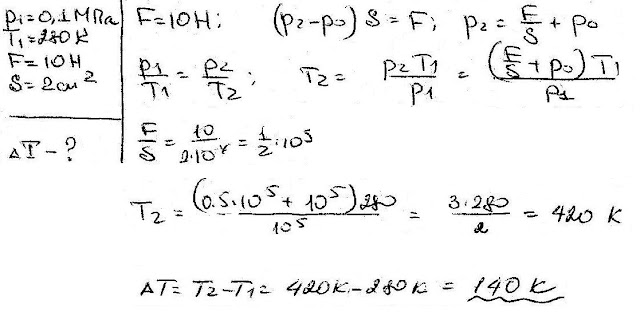 p₁=0,1 МПа
T₁=280 K
F=10 H
S=2 см²
ΔT-?
F=10H; (p₂-p₀) S = F; p₂ = F/S + p₀
p₁/T₁ = p₂/T₂; T₂ = p₂T₁/p₁ = (F/S + p₀) T₁/p₁
F/S = 10/2·10⁻⁴ = 1/2·10⁵
T₂ = (0.5·10⁵ + 10⁵) 280/10⁵ = 3·280/2 = 420 K
ΔT = T₂-T₁ = 420K-280K = 140K